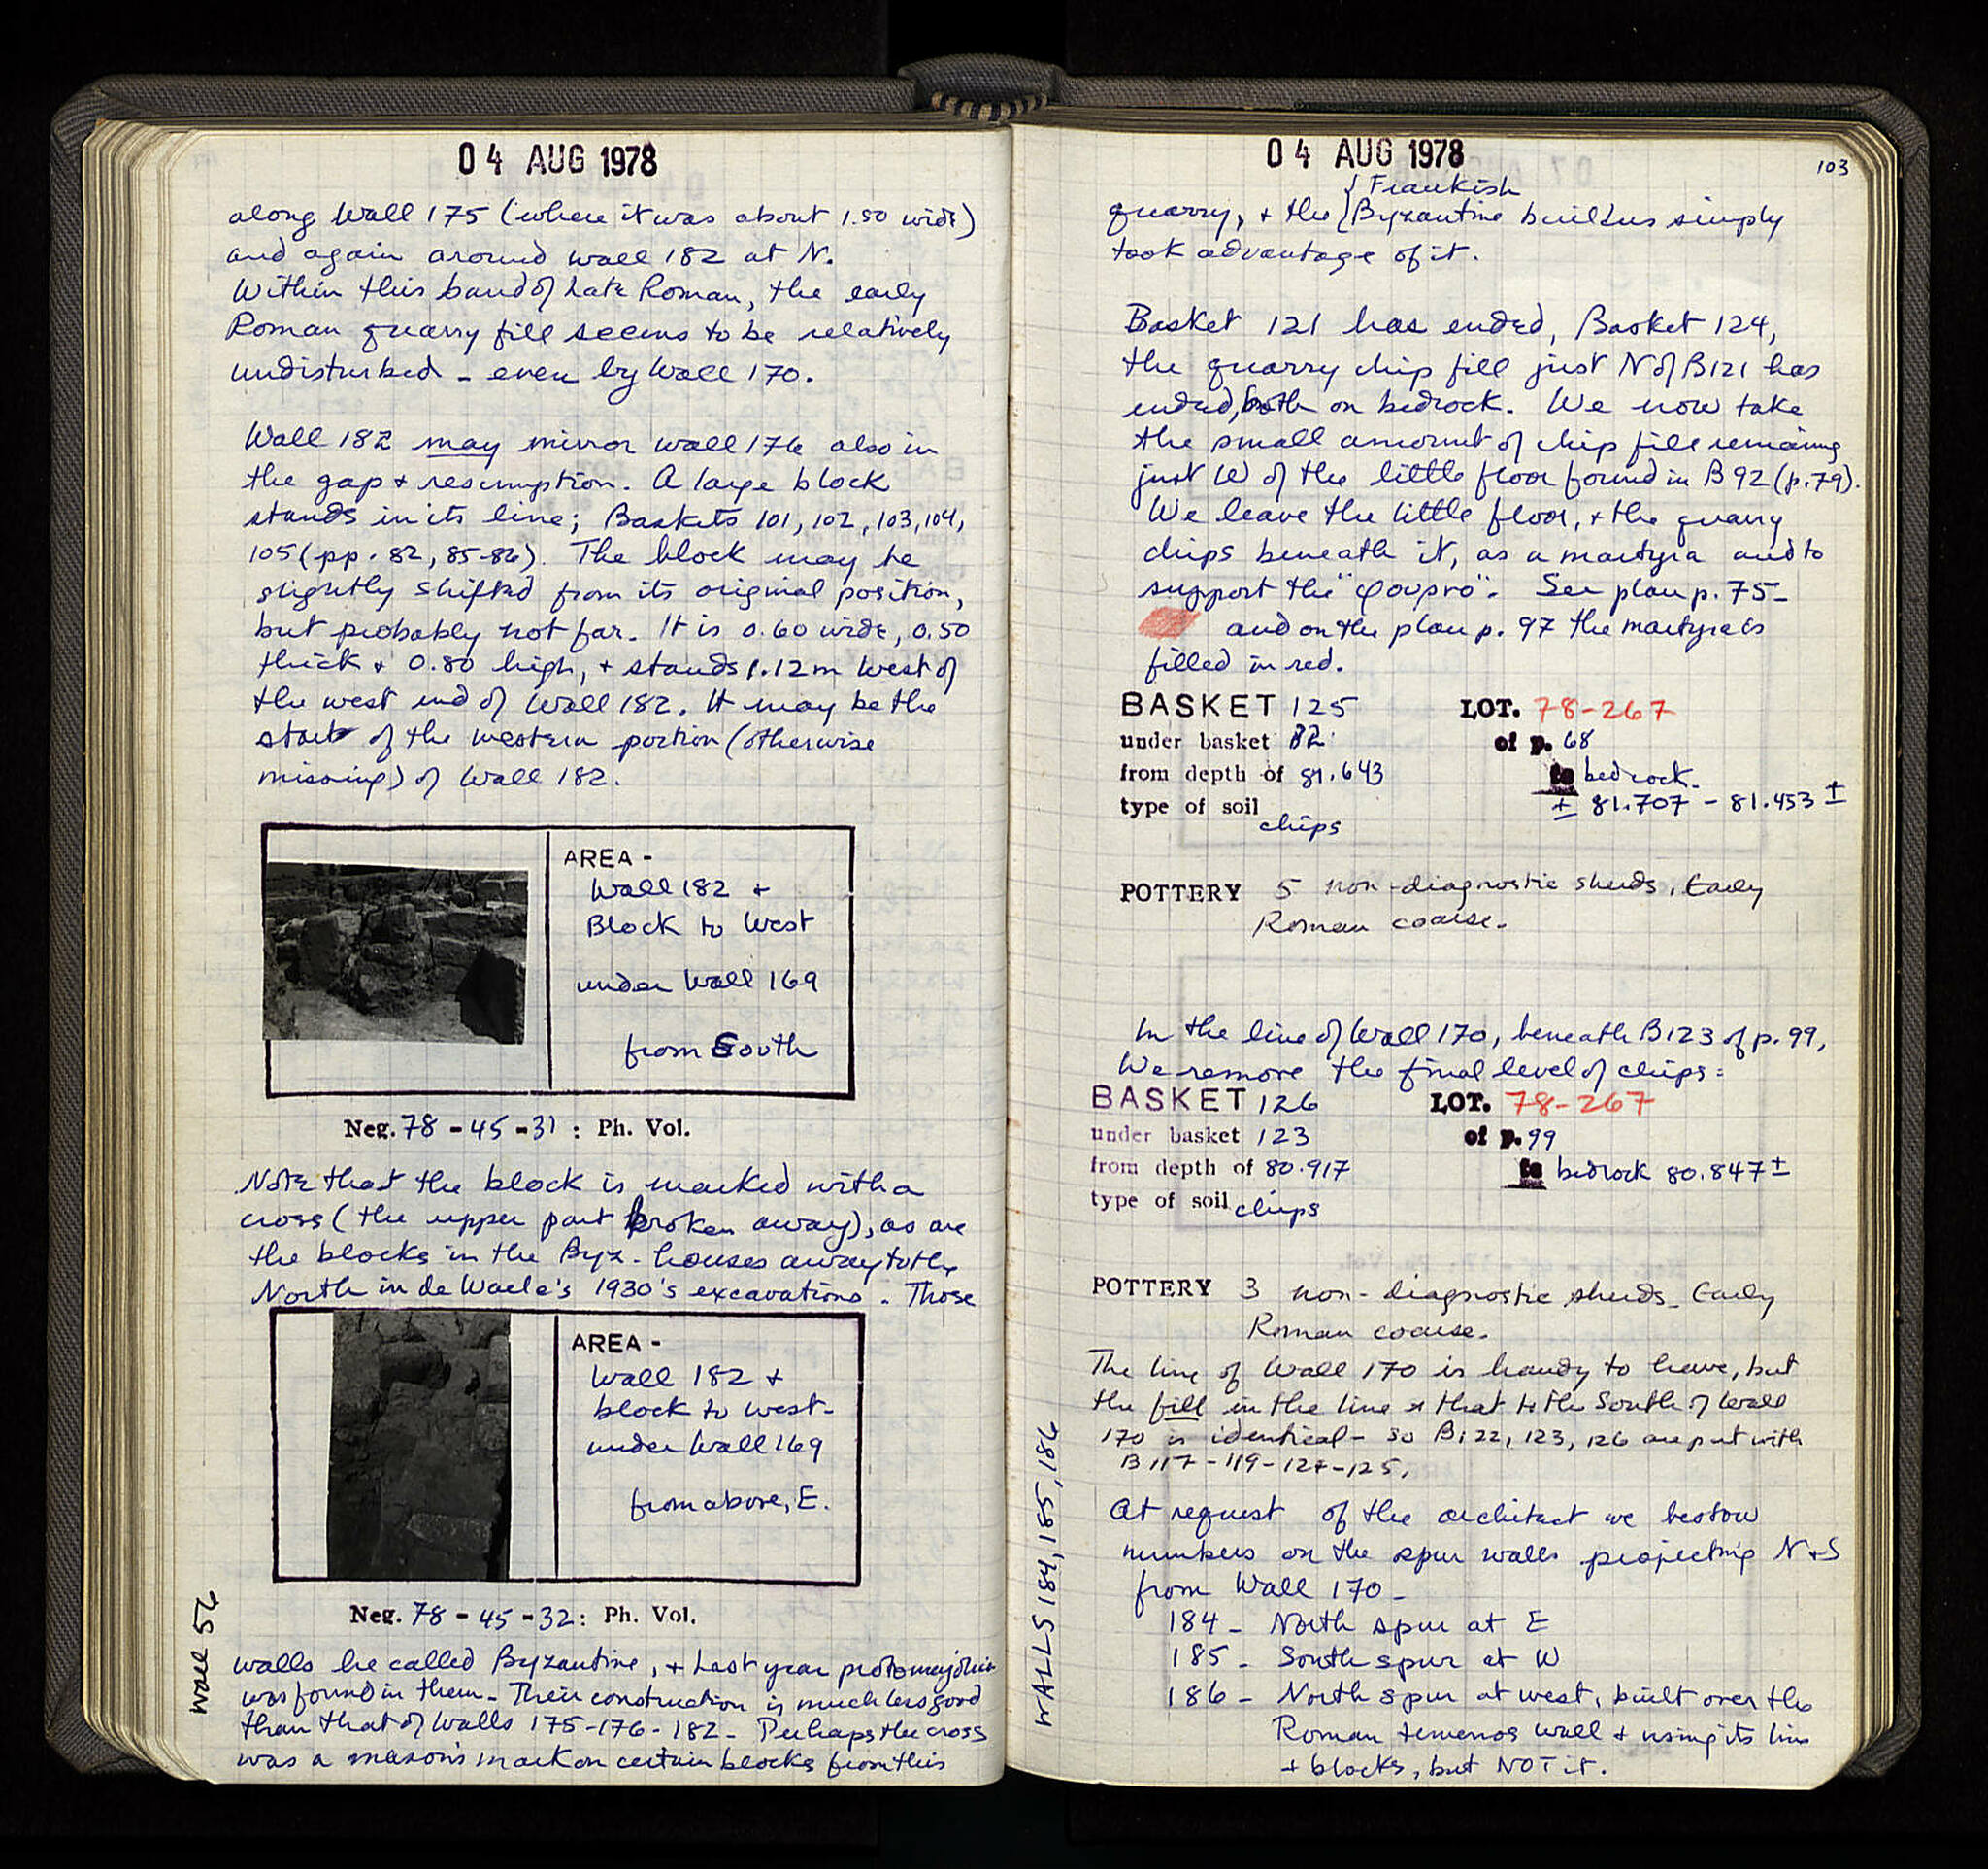 04 AUG 1978
along Wall 175 (where it was about 1.50 wide)
and again around wall 182 at N.
Within this band of Late Roman, the early
Roman quarry fill seems to be relatively
undisturbed - even by Wall 170.
Wall 182 may mirror wall 176 also in
the gap + resumption. A large block
stands in its line; Baskets 101, 102, 103, 104,
105 (pp. 82, 85-86). The block may be
slightly shifted from its original position,
but probably not far. It is 0.60 wide, 0.50
thick + 0.80 high, + stands 1.12m West of
the west end of Wall 182. It may be the
start of the western portion (otherwise
missing) of Wall 182.
AREA -
Wall 182 +
Block to West
under Wall 169
from South
Neg. 78 - 45 - 31 : Ph. Vol.
Note that the block is marked with a
cross (the upper part broken away), as are
the blocks in the Byz. houses away to the
North in de Waele's 1930's excavations. Those
AREA -
Wall 182 +
block to west-
under Wall 169
from above, E.
Neg. 78 - 45 - 32 : Ph. Vol.
Wall 56
walls he called Byzantine, + last year protomajolica
was found in them - Their construction is much less good
than that of Walls 175-176-182 - Perhaps the cross
was a mason's mark on certain blocks from this
04 AUG 1978
103
{ Frankish
quarry, + the { Byzantine builders simply
took advantage of it.
Basket 121 has ended, Basket 124,
the quarry chip fill just N of B121 has
ended, both on bedrock. We now take
the small amount of chip fill remaining
just W of the little floor found in B 92 (p.79).
We leave the little floor, + the quarry
chips beneath it, as a martyra and to
support the "φουρνο". See plan p. 75-
and on the plan p. 97 the martyra is
filled in red.
BASKET 125 LOT. 78-267
under basket 82 of p. 68
from depth of 81.643 to bedrock.
type of soil ± 81.707 - 81.453 ±
chips
POTTERY 5 non-diagnostic sherds, Early
Roman coarse.
In the line of Wall 170, beneath B123 of p. 99,
We remove the final level of chips:
BASKET 126 LOT. 78-267
under basket 123 of p. 99
from depth of 80.917 to bedrock 80.847 ±
type of soil chips
POTTERY 3 non-diagnostic sherds - Early
Roman coarse.
The line of Wall 170 is handy to have, but
the fill in the line + that to the South of Wall
170 is identical - so B122, 123, 126 are put with
B 117 - 119 - 124 - 125.
WALLS 184, 185, 186
At request of the architect we bestow
numbers on the spur walls projecting N + S
from Wall 170 -
184 - North spur at E
185 - South spur at W
186 - North spur at west, built over the
Roman temenos wall + using its line
+ blocks, but NOT it.